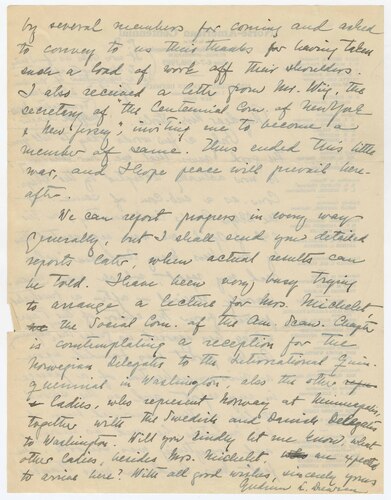 by several members for coming and asked
to convey to us their thanks for having taken
such a load of work off their shoulders.
I also received a letter from Mr. Wiig, the
secretary of "the Centennial Com. of New York
& New Jersey", inviting me to become a
member of same. Thus ended this little
war, and I hope peace will prevail here-
after.
We can report progress in every way
generally, but I shall send you detailed
reports later, when actual results can
be told. I have been very busy trying
to arrange a lecture for Mrs. Michelet,
the Social Com. of the Am. Scan. Chapter
is contemplating a reception for the
Norwegian Delegates to the International Quin-
quennial in Washington, also the other
Ladies, who represent Norway at Minneapolis,
together with the Swedish and Danish Delegates
to Washington. Will you kindly let me know what
other Ladies, besides Mrs. Michelet are expected
to arrive here? With all good wishes, sincerely yours
Gudrun L.